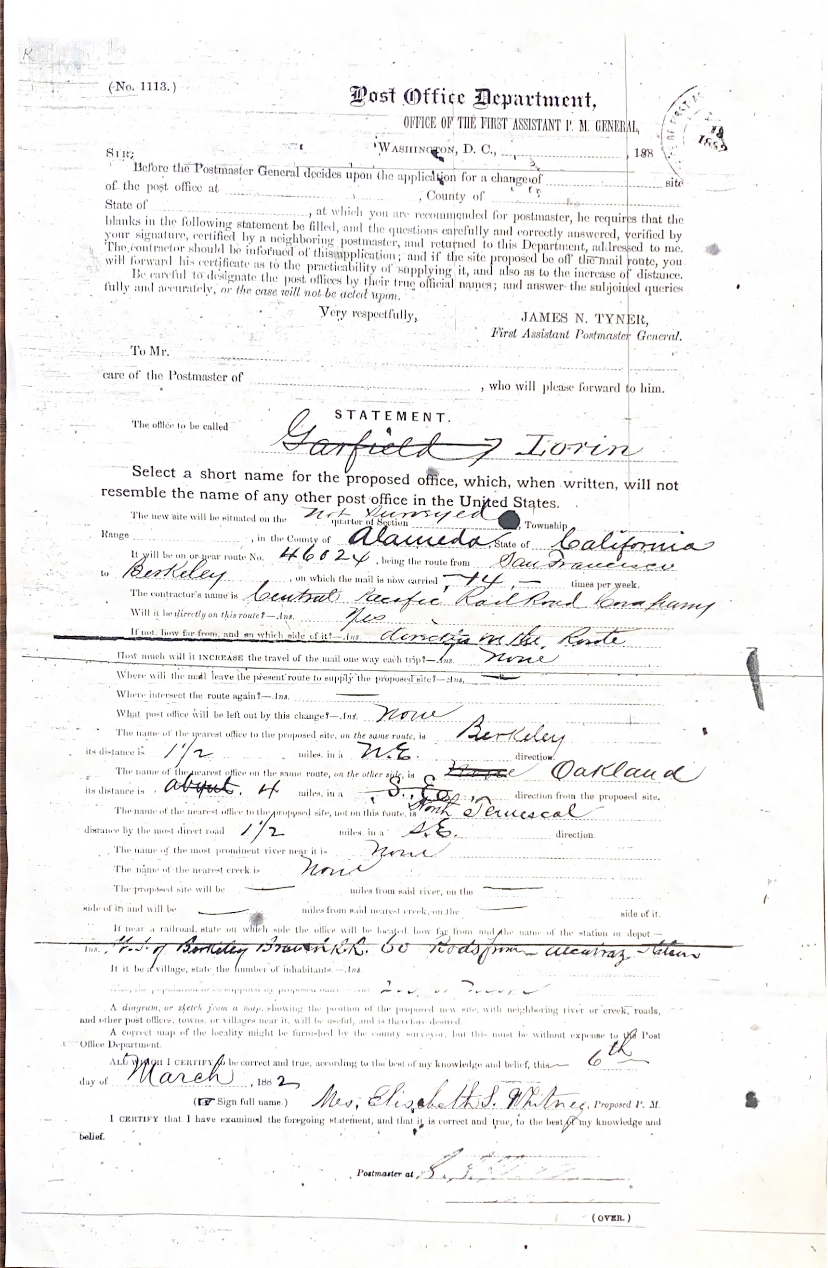 (No. 1113.)
Post Office Department,
OFFICE OF THE FIRST ASSISTANT P. M. GENERAL,
WASHINGTON, D. C., , 188
SIR:
Before the Postmaster General decides upon the application for a change of site
of the post office at , County of
State of , at which you are recommended for postmaster, he requires that the
blanks in the following statement be filled, and the questions carefully and correctly answered, verified by
your signature, certified by a neighboring postmaster, and returned to this Department, addressed to me.
The contractor should be informed of this application; and if the site proposed be off the mail route, you
will forward his certificate as to the practicability of supplying it, and also as to the increase of distance.
Be careful to designate the post offices by their true official names; and answer the subjoined queries
fully and accurately, or the case will not be acted upon.
Very respectfully,
JAMES N. TYNER,
First Assistant Postmaster General.
To Mr.
care of the Postmaster of , who will please forward to him.
STATEMENT.
The office to be called Garfield Lorin
Select a short name for the proposed office, which, when written, will not
resemble the name of any other post office in the United States.
The new site will be situated on the not Surveyed quarter of Section , Township
Range , in the County of Alameda, State of California
It will be on or near route No. 46024, being the route from San Francisco
to Berkeley, on which the mail is now carried 14 times per week.
The contractor's name is Central Pacific Rail Road Company
Will it be directly on this route?—Ans. Yes
If not, how far from, and on which side of it?—Ans. directly on the Route
How much will it INCREASE the travel of the mail one way each trip?—Ans. none
Where will the mail leave the present route to supply the proposed site?—Ans. —
Where intersect the route again?—Ans. —
What post office will be left out by this change?—Ans. none
The name of the nearest office to the proposed site, on the same route, is Berkeley
its distance is 1 1/2 miles, in a N.E. direction.
The name of the nearest office on the same route, on the other side, is None Oakland
its distance is about 4 miles, in a S. direction from the proposed site.
The name of the nearest office to the proposed site, not on this route, is North Temescal
distance by the most direct road 1 1/2 miles in a S.E. direction.
The name of the most prominent river near it is None
The name of the nearest creek is None
The proposed site will be — miles from said river, on the —
side of it; and will be — miles from said nearest creek, on the — side of it.
If near a railroad, state on which side the office will be located, how far from and the name of the station or depot.—
Ans. of Berkeley Branch R.R. 60 Rods from Alcatraz Station
If it be a village, state the number of inhabitants.—Ans.
A diagram, or sketch from a map, showing the position of the proposed new site, with neighboring river or creek, roads,
and other post offices, towns, or villages near it, will be useful, and is therefore desired.
A correct map of the locality might be furnished by the county surveyor, but this must be without expense to the Post
Office Department.
ALL WHICH I CERTIFY to be correct and true, according to the best of my knowledge and belief, this 6th
day of March, 1882
(Sign full name.) Mrs. Elisabeth S. Whitney, Proposed P. M.
I CERTIFY that I have examined the foregoing statement, and that it is correct and true, to the best of my knowledge and
belief.
Postmaster at
(OVER.)